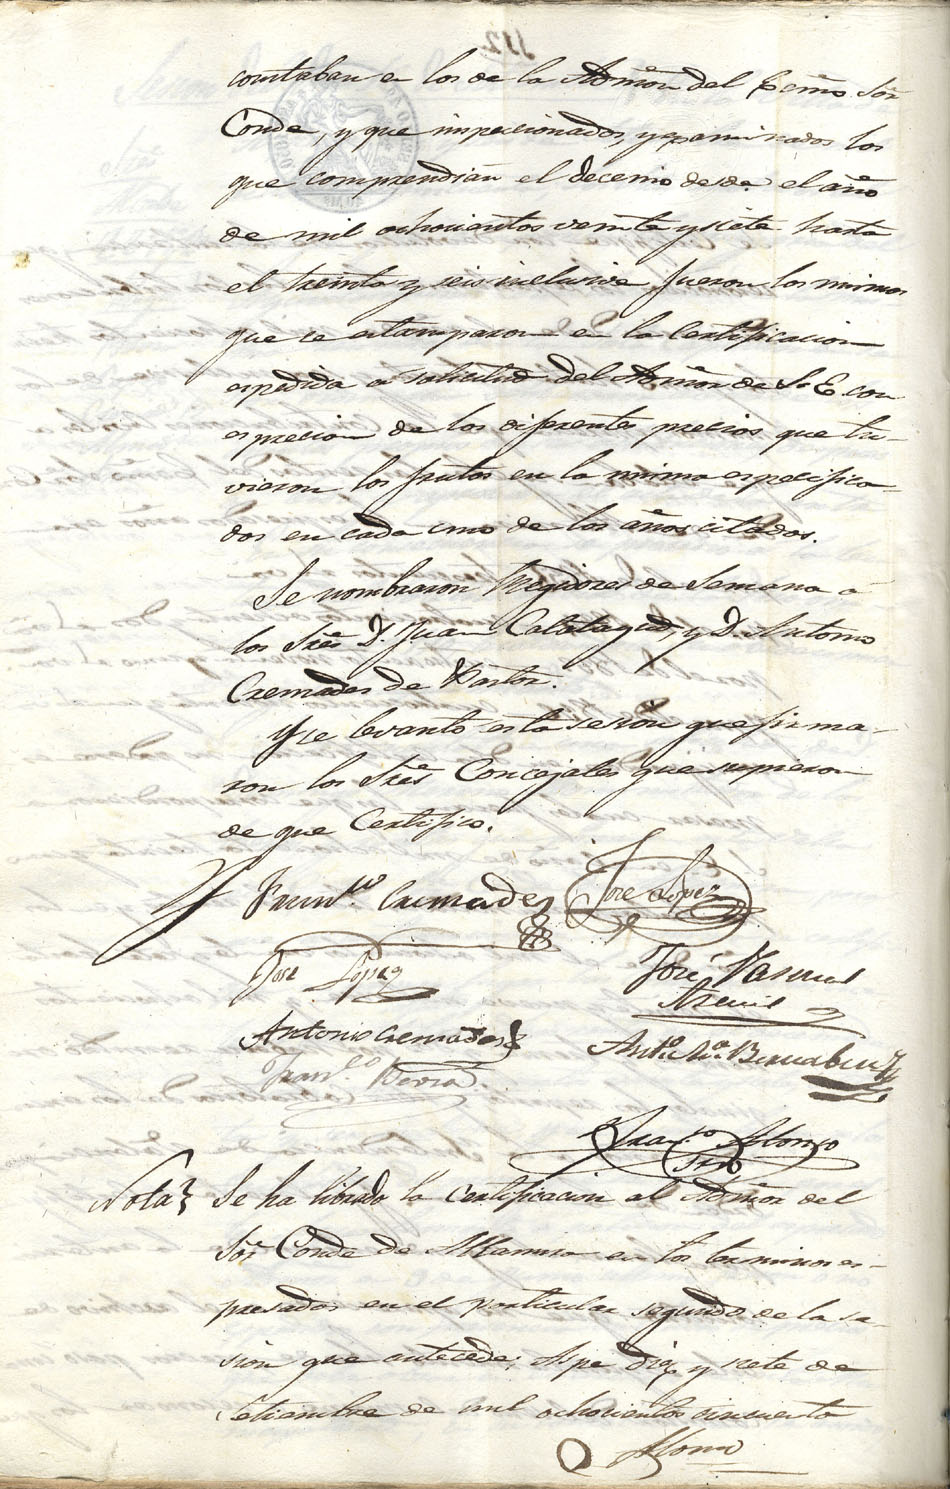 constaban en los de la Admon del Ecsmo. Sor
Conde, y que inspeccionados, y ecsaminados los
que comprendian el decenio desde el año
de mil ochocientos veinte y siete hasta
el treinta y seis inclusive, fueron los mismos
que se estamparon en la Certificacion
espedida a solicitud del Admor de S. E. con
espresion de los diferentes precios que tu-
vieron los frutos en la misma especifica-
dos en cada uno de los años citados.
Se nombraron Regidores de Semana a
los Sres D. Juan Calatayud, y D. Antonio
Cremades de Pastor.
Y se levanto esta sesion que firma-
ron los Sres Concejales que supieron
de que Certifico.
Franco. Cremades José Lopez
José Lopez José Pascual
Antonio Cremades Anto. Ma. Bernabeu
Franco.
Franco. Alonso
Srio
Nota Se ha librado la certificacion al Admor del
Sor Conde de Altamira en los terminos es-
presados en el particular segundo de la se-
sion que antecede; Aspe diez y siete de
Setiembre de mil ochocientos cincuenta
Alonso